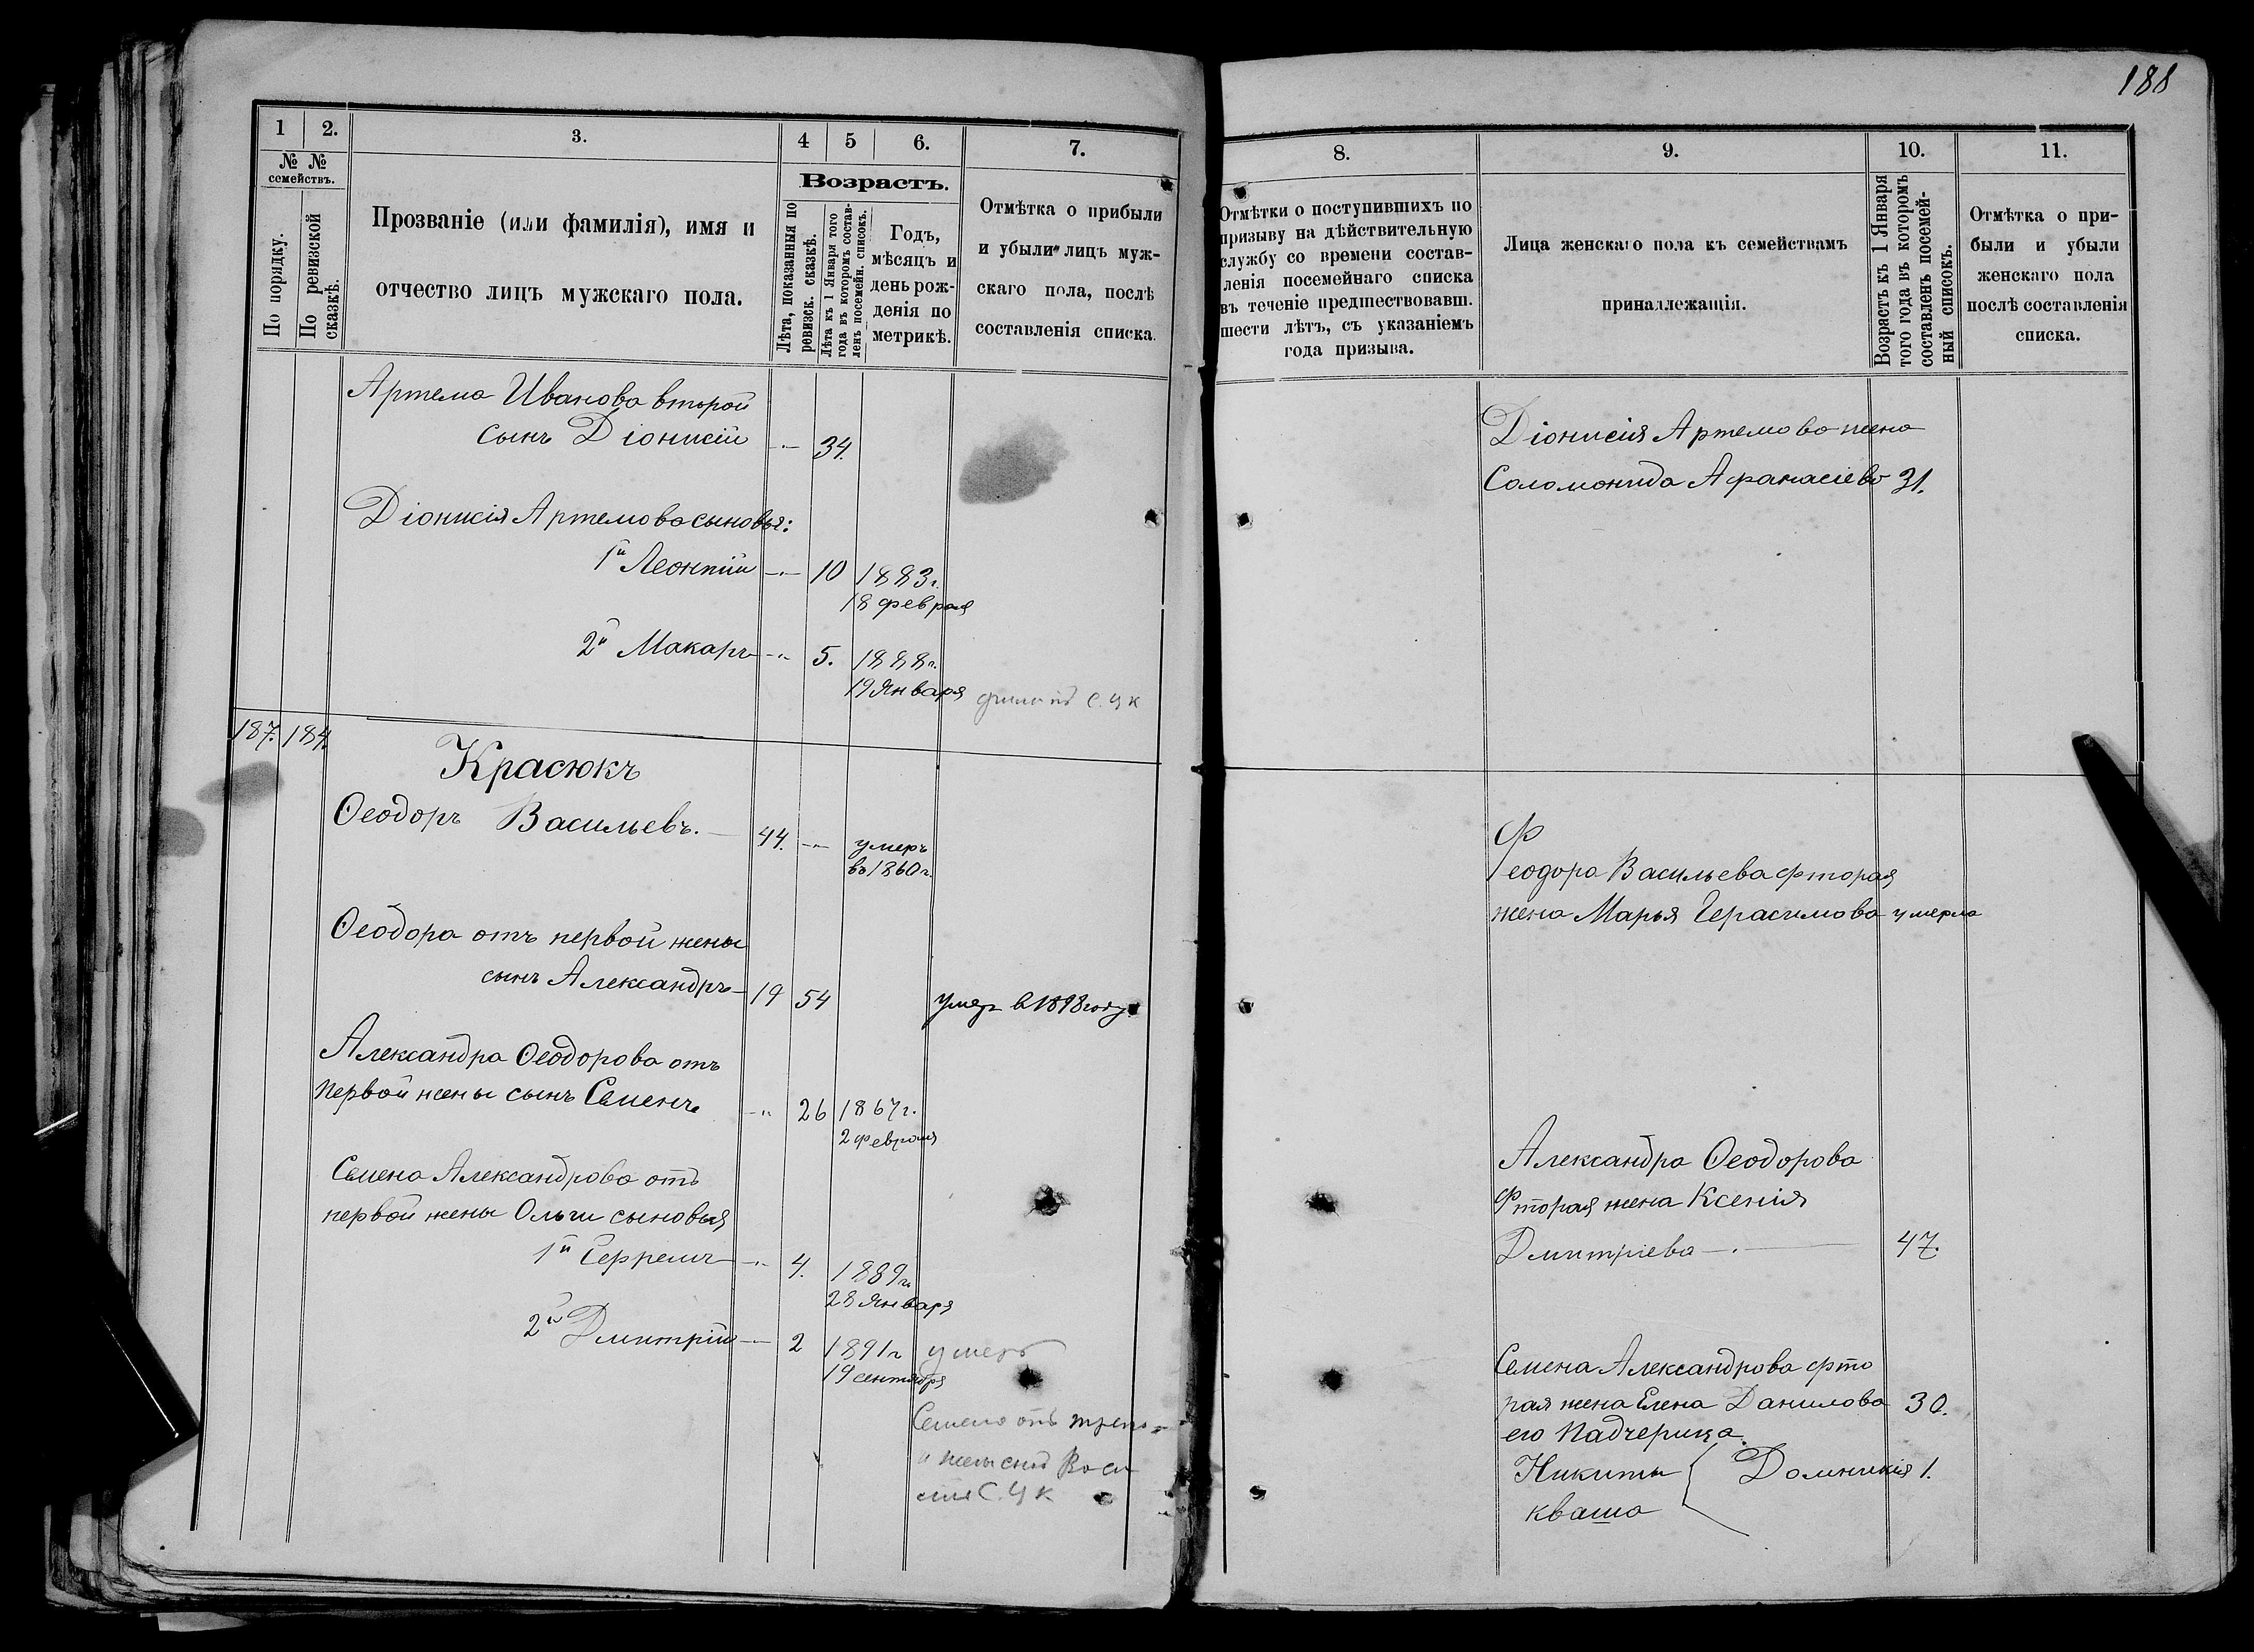 188
1 2. 3. 4 5 6. 7.
№ №
семействъ.
По порядку.
По ревизской
сказкѣ.
Прозваніе (или фамилія), имя и
отчество лицъ мужскаго пола.
Возрастъ.
Лѣта, показанныя по
ревизск. сказкѣ.
Лѣта къ 1 Января того
года въ которомъ состав-
ленъ посемейн. списокъ.
Годъ,
мѣсяцъ и
день рож-
денія по
метрикѣ.
Отмѣтка о прибыли
и убыли лицъ муж-
скаго пола, послѣ
составленія списка.
Артема Иванова второй
сынъ Діонисій 34.
Діонисія Артемова сыновья:
1й Леонтій 10 1883г.
18 февраля
2й Макаръ 5. 1888г.
19 Января
С. Ч К
187. 184.
Красюкъ
Ѳеодоръ Васильевъ. 44. умеръ
въ 1860г.
Ѳеодора отъ первой жены
сынъ Александръ 19 54 умеръ в 1898 году
Александра Ѳеодорова отъ
первой жены сынъ Семенъ 26 1867г.
2 февраля
Семена Александрова отъ
первой жены Ольги сыновья
1й Ефремъ 4. 1889г.
28 Января
2й Дмитрій 2 1891г умеръ
19 сентября
Семена отъ
С. Ч К
8. 9. 10. 11.
Отмѣтки о поступившихъ по
призыву на дѣйствительную
службу со времени состав-
ленія посемейнаго списка
въ теченіе предшествовавш.
шести лѣтъ, съ указаніемъ
года призыва.
Лица женскаго пола къ семействамъ
принадлежащія.
Возрастъ къ 1 Января
того года въ которомъ
составленъ посемей-
ный списокъ.
Отмѣтка о при-
были и убыли
женскаго пола
послѣ составленія
списка.
Діонисія Артемова жена
Соломонида Афанасіева 31.
Ф
еодора Васильева фторая
жена Марья Герасимова умерла
Александра Ѳеодорова
фторая жена Ксенія
Дмитріева 47.
Семена Александрова фто
рая жена Елена Данилова 30.
его падчерица
Никиты Домникія 1.
кваша